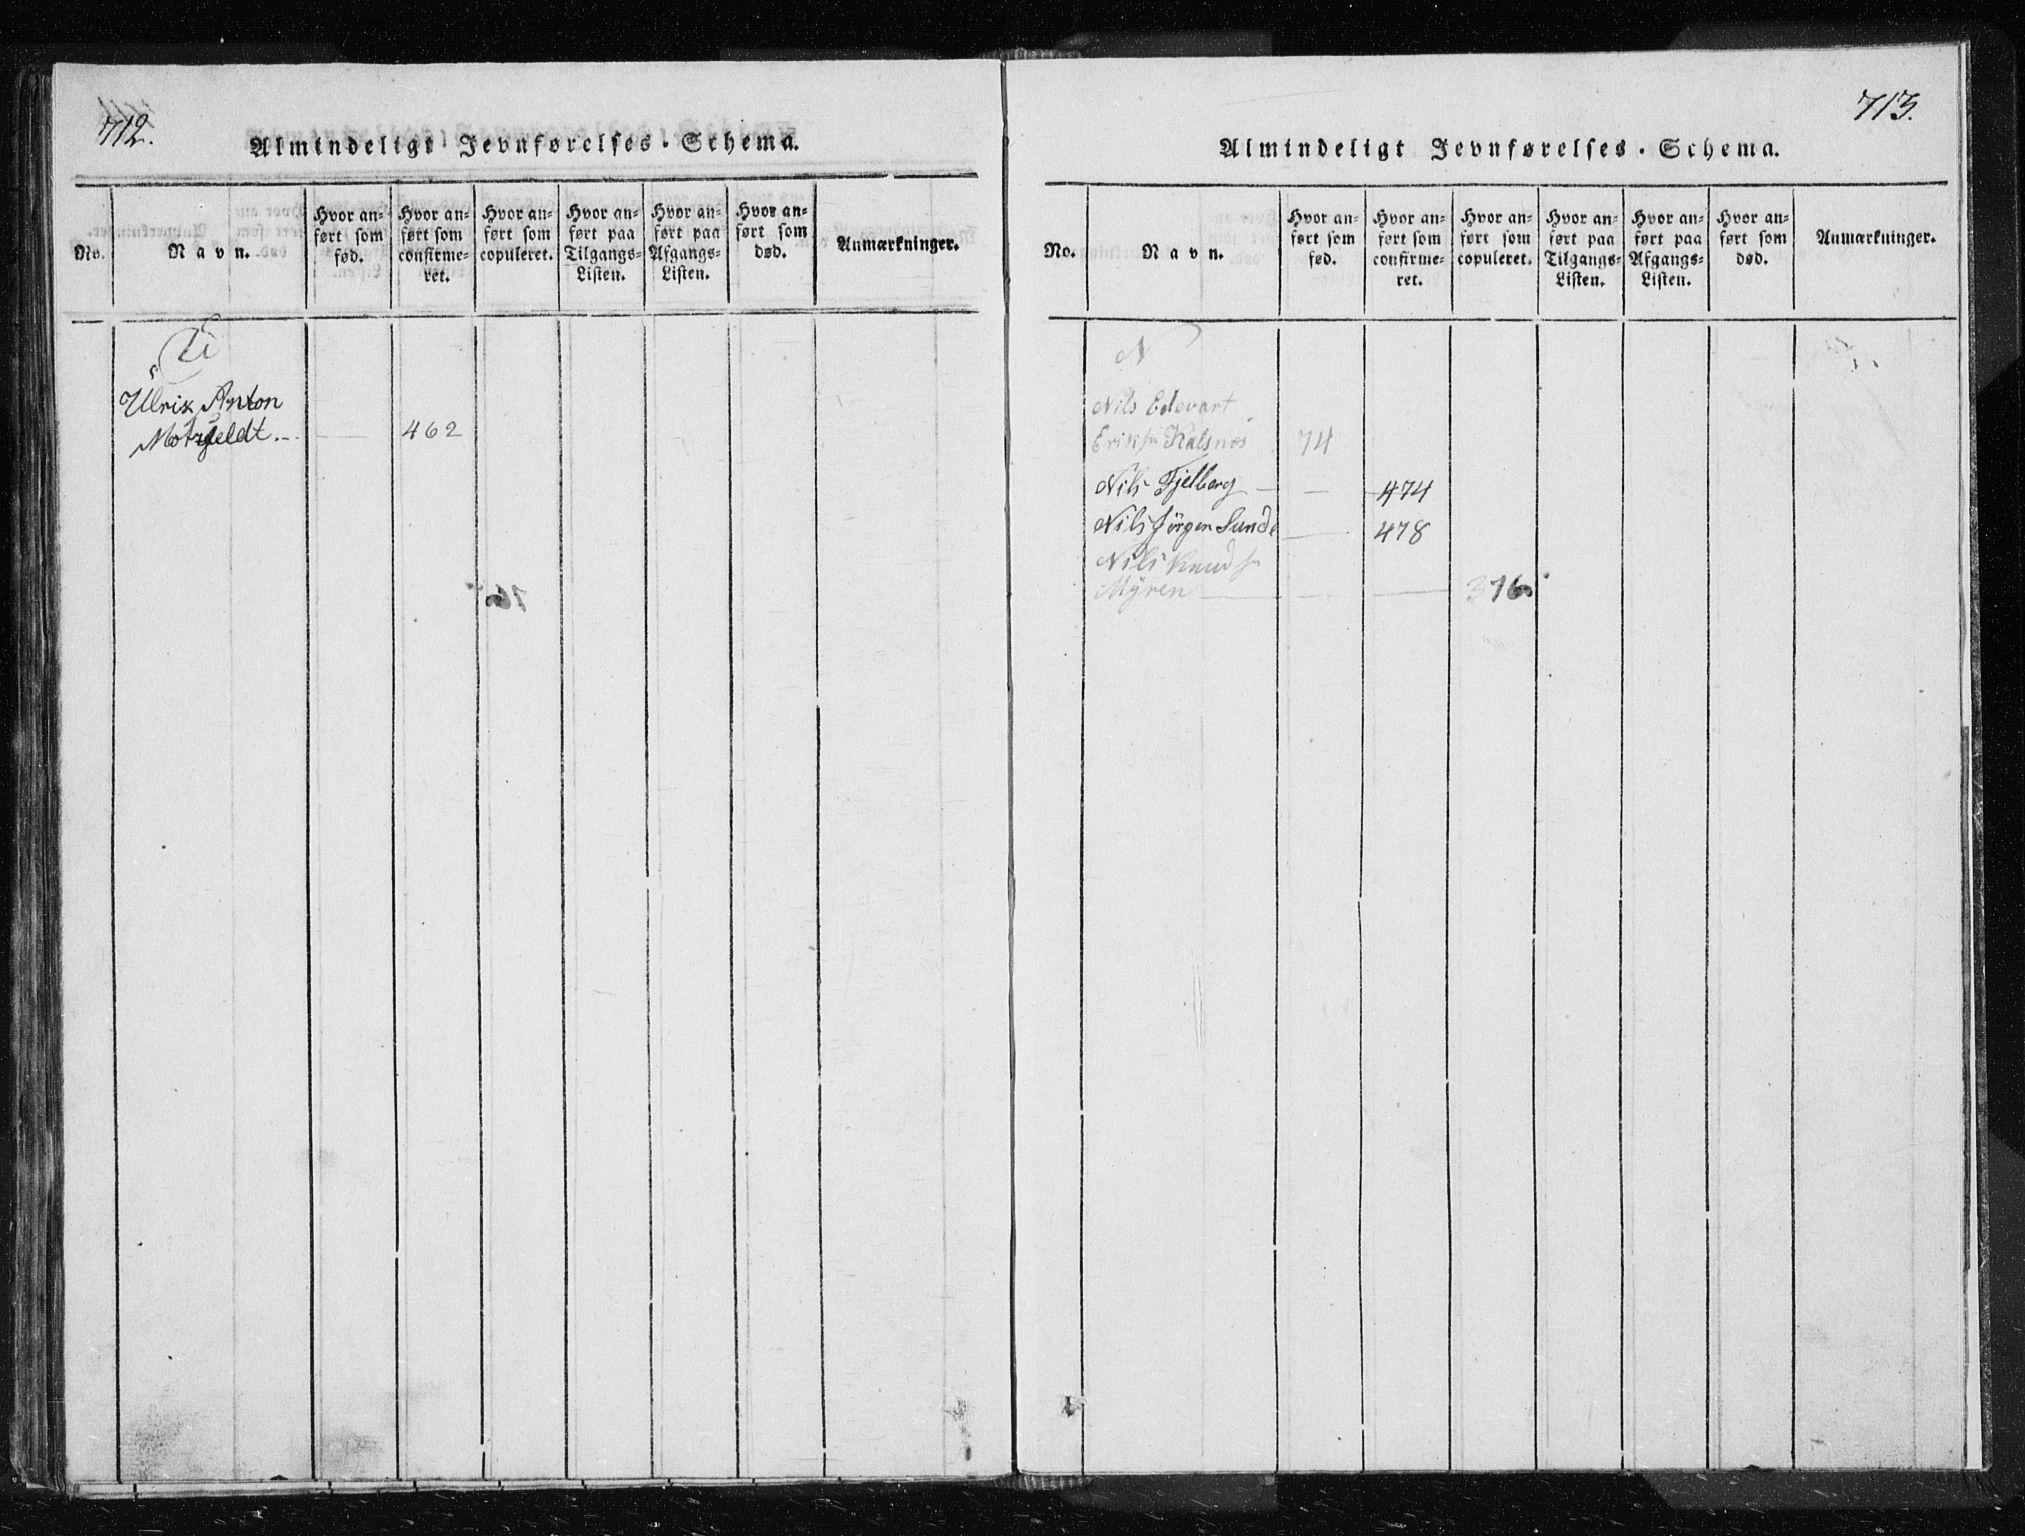 712.
Almindeligt Jevnførelses-Schema.
No.
Navn.
Hvor anført som fød.
Hvor anført som confirmeret.
Hvor anført som copuleret.
Hvor anført paa Tilgangs-Listen.
Hvor anført paa Afgangs-Listen.
Hvor anført som død.
Anmærkninger.
U
Ulrik Anton
Motzfeldt. — 462
713.
Almindeligt Jevnførelses-Schema.
No.
Navn.
Hvor anført som fød.
Hvor anført som confirmeret.
Hvor anført som copuleret.
Hvor anført paa Tilgangs-Listen.
Hvor anført paa Afgangs-Listen.
Hvor anført som død.
Anmærkninger.
N
Nils Edevart
Eriksn Kalsnes 74
Nils Fjelberg — — 474
Nils Jörgen Sunde — 478
Nils Knudsn
Myren — — — 316